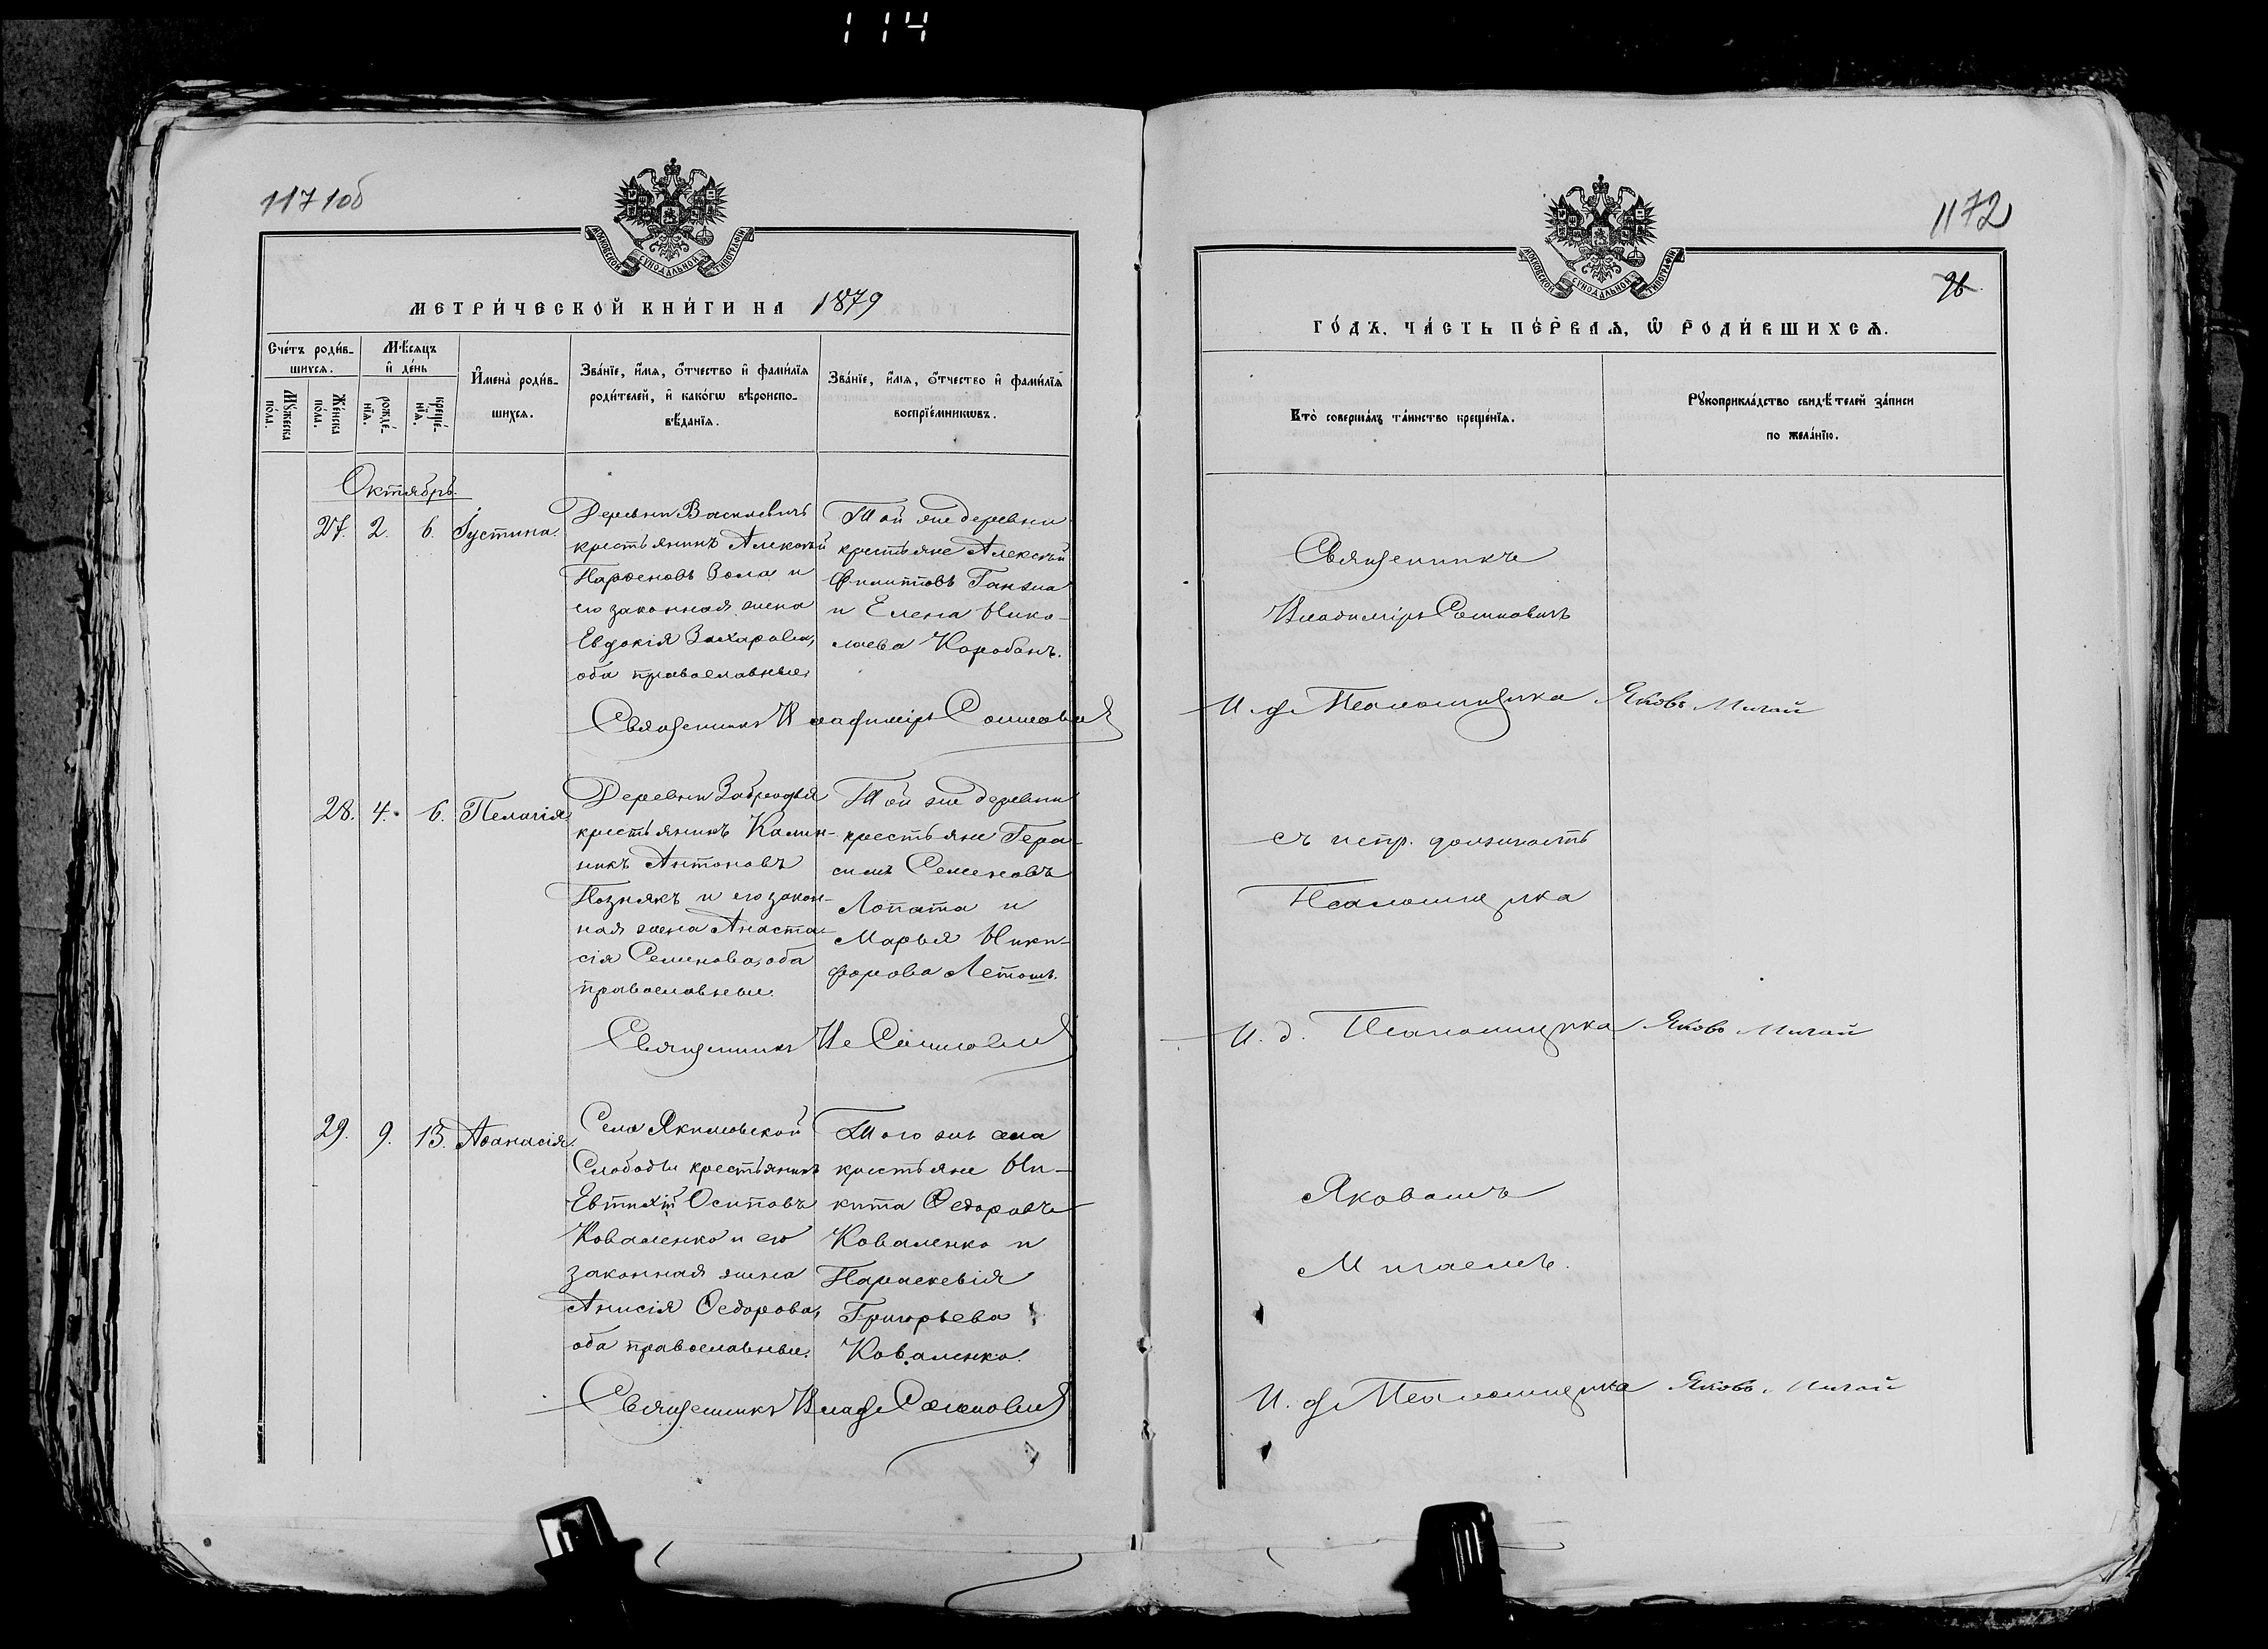 114
1171об
МОСКОВСКОЙ СУНОДАЛЬНОЙ ТИПОГРАФІИ
МЕТРИ́ЧЕСКОЙ КНИ́ГИ НА 1879
Сче́тъ роди́в-
шихсѧ.
Мѣ́сѧцъ
и҆ де́нь
Мꙋ́жеска
по́ла.
Же́нска
по́ла.
рожде́-
нїѧ.
креще́-
нїѧ.
И҆мена̀ роди́в-
шихсѧ.
Зва́нїе, и҆́мѧ, ѻ҆́тчество и҆ фами́лїѧ
роди́телей, и҆ како́гѡ вѣроиспо-
вѣ́данїѧ.
Зва́нїе, и҆́мѧ, ѻ҆́тчество и҆ фами́лїѧ
воспрїе́мникѡвъ.
Октябрь.
27. 2. 6. Іустина.
Деревни Василевичъ
крестьянинъ Алексѣй
Парѳеновъ Зола и
его законная жена
Евдокія Захарова,
оба православные.
Той же деревни
крестьяне Алексѣй
Филипповъ Ганжа
и Елена Нико-
лаева Коробанъ.
Священникъ Владиміръ
28. 4. 6. Пелагія.
Деревни
крестьянинъ Калин-
никъ Антоновъ
Познякъ и его закон-
ная жена Анаста-
сія Семенова, оба
православные.
Той же деревни
крестьяне Гера-
симъ Семеновъ
Лопата и
Марья Ники-
форова
Священникъ
29. 9. 13. Аѳанасія.
Села Якимовской
Слободы крестьянинъ
Евтихій Осиповъ
Коваленко и его
законная жена
Анисія Ѳедорова,
оба православные.
Того же села
крестьяне Ни-
кита Ѳедоровъ
Коваленко и
Параскевія
Григорьева
Коваленко.
Священникъ Влад.
1172
96
МОСКОВСКОЙ СУНОДАЛЬНОЙ ТИПОГРАФІИ
ГО́ДЪ, ЧА́СТЬ ПЕ́РВАѦ, Ѡ҆ РОДИ́ВШИХСѦ.
Кто̀ соверша́лъ та́инство креще́нїѧ.
Рꙋкоприкла́дство свидѣ́телей за́писи
по жела́нїю.
Священникъ
Владиміръ
И. д. Псаломщика Яковъ Мигай
съ испр. должность
Псаломщика
И. д. Псаломщика Яковъ Мигай
Яковомъ
Мигаемъ.
И. д. Псаломщика Яковъ Мигай